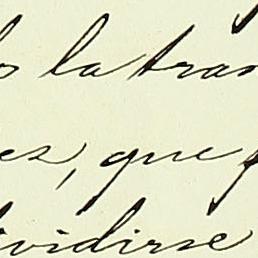 la tran
es, que
ividirse